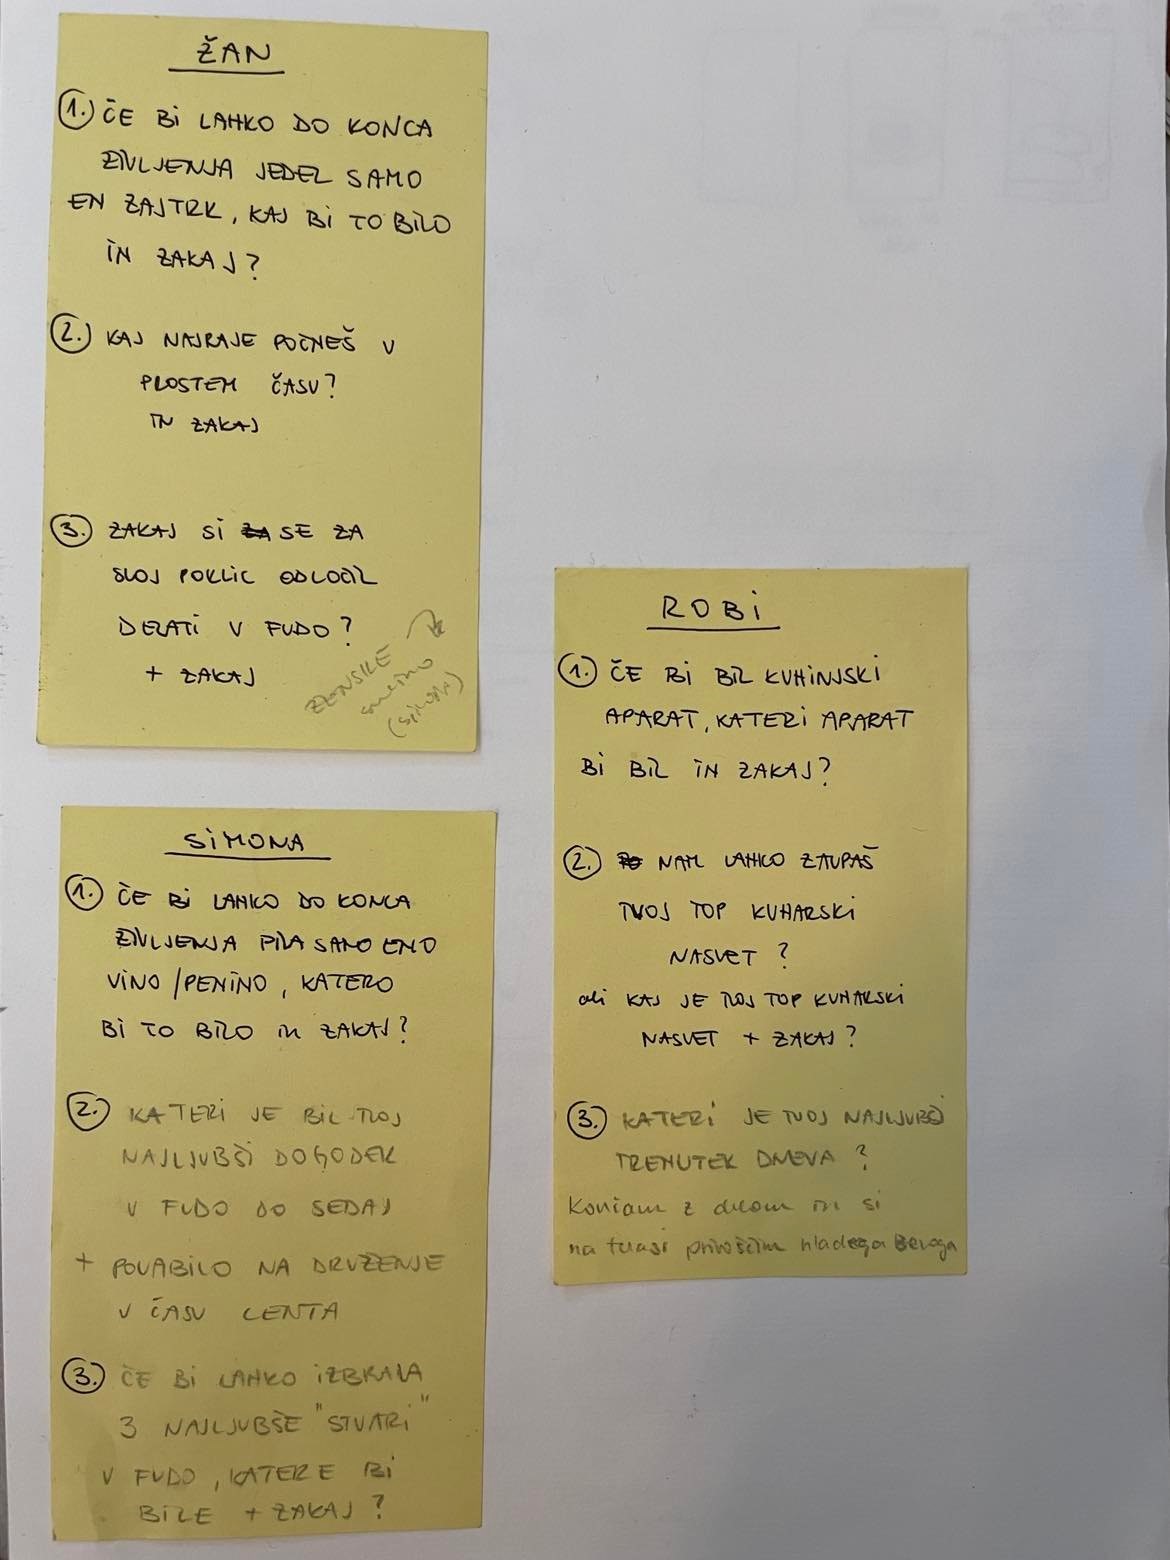 ŽAN
1. ČE BI LAHKO DO KONCA
ŽIVLJENJA JEDEL SAMO
EN ZAJTRK, KAJ BI TO BILO
IN ZAKAJ?
2. KAJ NAJRAJE POČNEŠ V
PROSTEM ČASU?
IN ZAKAJ
3. ZAKAJ SI ZA SE ZA
SVOJ POKLIC ODLOČIL
DELATI V FUDO?
+ ZAKAJ
ŽENSKE
(simona)
SIMONA
1. ČE BI LAHKO DO KONCA
ŽIVLJENJA PILA SAMO ENO
VINO/PENINO, KATERO
BI TO BILO IN ZAKAJ?
2. KATERI JE BIL TVOJ
NAJLJUBŠI DOGODEK
V FUDO DO SEDAJ
+ POVABILO NA DRUŽENJE
V ČASU LENTA
3. ČE BI LAHKO IZBRALA
3 NAJLJUBŠE "STVARI"
V FUDO, KATERE BI
BILE + ZAKAJ?
ROBI
1. ČE BI BIL KUHINJSKI
APARAT, KATERI APARAT
BI BIL IN ZAKAJ?
2. NAM LAHKO ZAUPAŠ
TVOJ TOP KUHARSKI
NASVET?
ali KAJ JE TVOJ TOP KUHARSKI
NASVET + ZAKAJ?
3. KATERI JE TVOJ NAJLJUBŠI
TRENUTEK DNEVA?
Končam z delom in si
na terasi privoščim hladnega Beroga